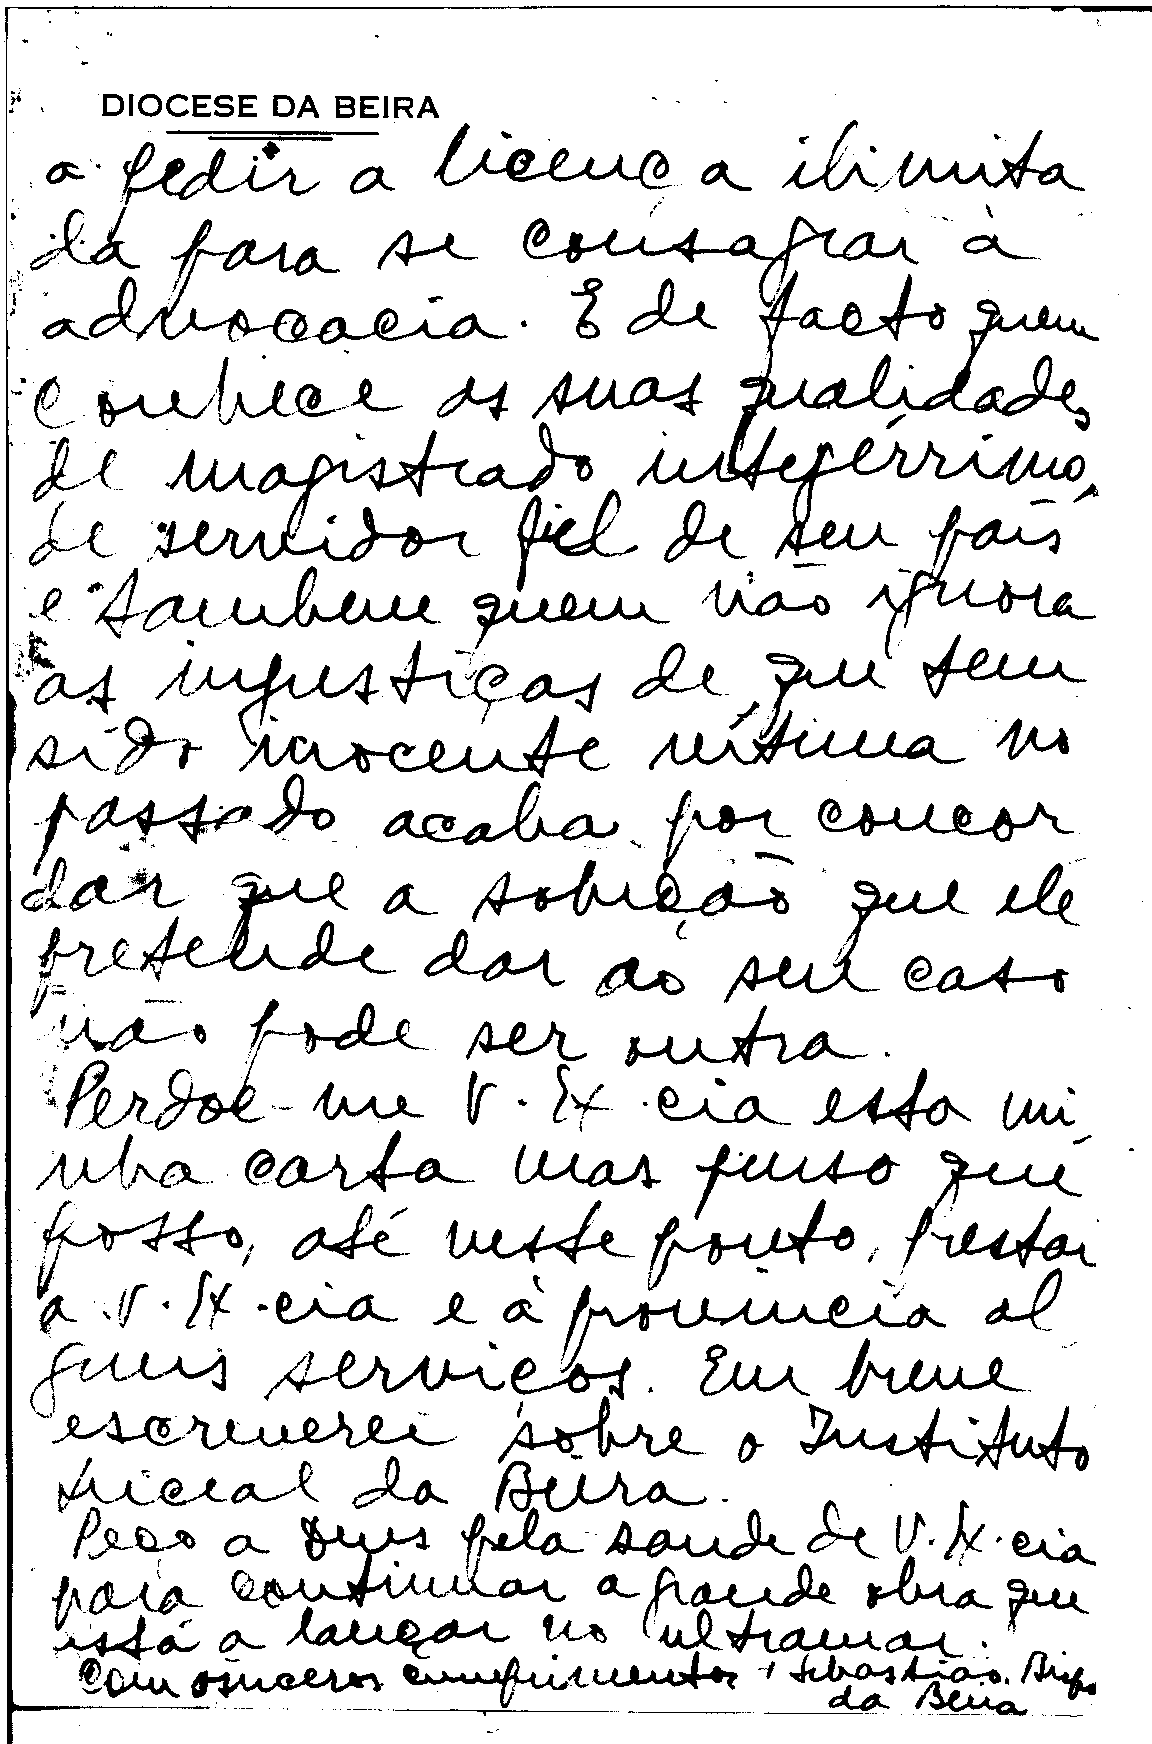 DIOCESE DA BEIRA
a pedir a licença ilimita
da para se consagrar à
advocacia. E de facto quem
conhece as suas qualidades
de magistrado integérrimo,
de servidor fiel de seu país
e tambem quem não ignora
as injustiças de que tem
sido inocente vítima no
passado acaba por concor
dar que a solução que ele
pretende dar ao seu caso
não pode ser outra.
Perdoe-me V. Ex.cia esta mi
nha carta mas penso que
posso, até neste ponto, prestar
a V. Ex.cia e à província al
guns serviços. Em breve
escreverei sobre o Instituto
Liceal da Beira.
Peço a Deus pela saude de V. Ex.cia
para continuar a grande obra que
está a lançar no ultramar.
Com sinceros cumprimentos, + Sebastião, Bispo
da Beira